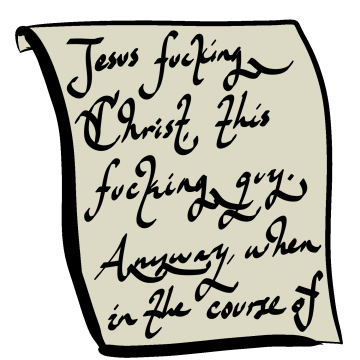 Jesus fucking
Christ, this
fucking guy.
Anyway, when
in the course of